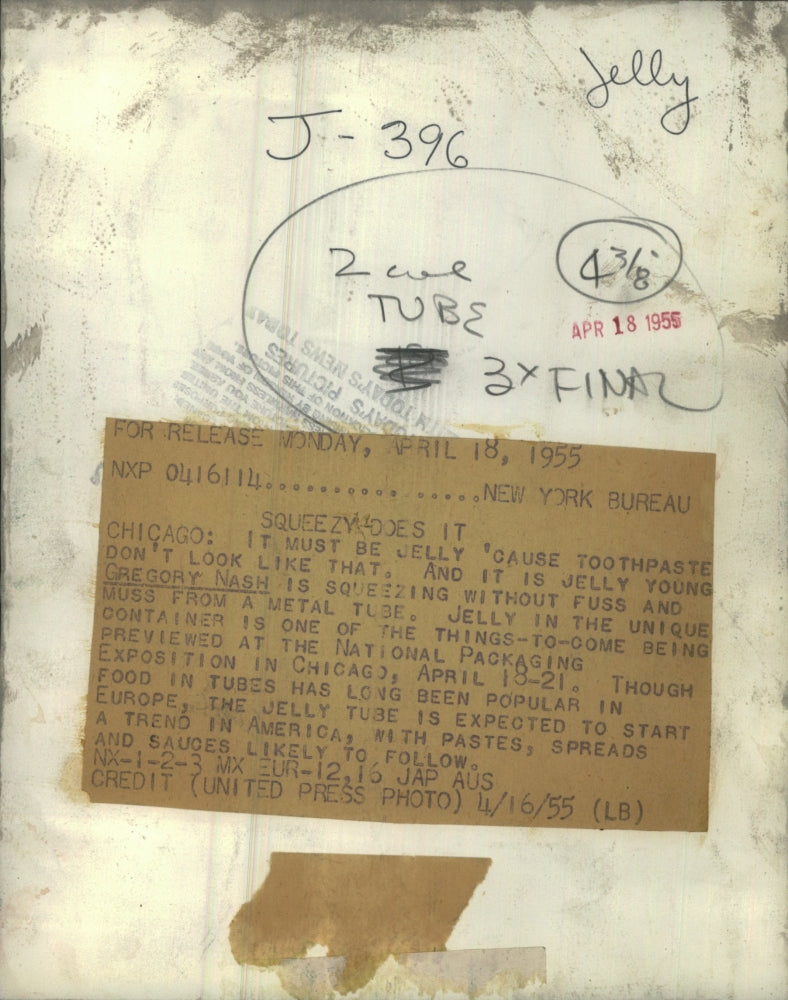 Jelly
J-396
2 col
TUBE
4 3/8
APR 18 1955
3x FINAL
IN TODAY'S NEWS TODAY
PICTURES
FOR RELEASE MONDAY, APRIL 18, 1955
NXP 0416114.......... .....NEW YORK BUREAU
SQUEEZY DOES IT
CHICAGO: IT MUST BE JELLY 'CAUSE TOOTHPASTE
DON'T LOOK LIKE THAT. AND IT IS JELLY YOUNG
GREGORY NASH IS SQUEEZING WITHOUT FUSS AND
MUSS FROM A METAL TUBE. JELLY IN THE UNIQUE
CONTAINER IS ONE OF THE THINGS-TO-COME BEING
PREVIEWED AT THE NATIONAL PACKAGING
EXPOSITION IN CHICAGO, APRIL 18-21. THOUGH
FOOD IN TUBES HAS LONG BEEN POPULAR IN
EUROPE, THE JELLY TUBE IS EXPECTED TO START
A TREND IN AMERICA, WITH PASTES, SPREADS
AND SAUCES LIKELY TO FOLLOW.
NX-1-2-3 MX EUR-12,16 JAP AUS
CREDIT (UNITED PRESS PHOTO) 4/16/55 (LB)